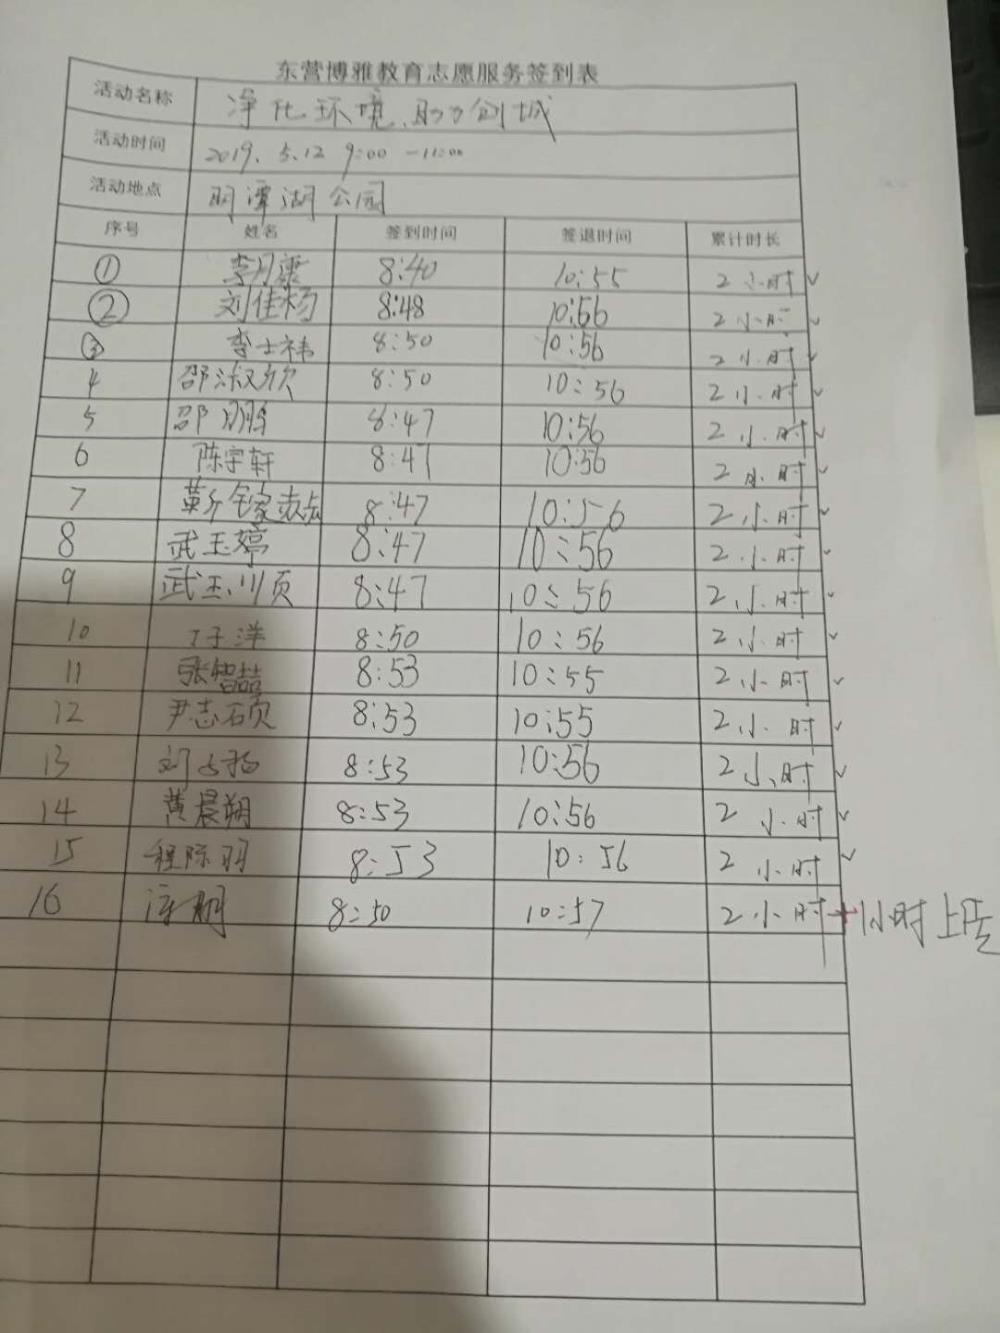 东营博雅教育志愿服务签到表
活动名称 净化环境、助力创城
活动时间 2019.5.12 9:00-11:00
活动地点 明潭湖公园
序号 姓名 签到时间 签退时间 累计时长
① 李月康 8:40 10:55 2小时 ✓
② 刘佳杨 8:48 10:56 2小时 ✓
③ 李士祎 8:50 10:56 2小时 ✓
4 邵淑欣 8:50 10:56 2小时 ✓
5 邵鹏 8:47 10:56 2小时 ✓
6 陈宇轩 8:47 10:56 2小时 ✓
7 靳 8:47 10:56 2小时 ✓
8 武玉婷 8:47 10:56 2小时 ✓
9 武玉顺 8:47 10:56 2小时 ✓
10 丁子洋 8:50 10:56 2小时 ✓
11 张智喆 8:53 10:55 2小时 ✓
12 尹志硕 8:53 10:55 2小时 ✓
13 8:53 10:56 2小时 ✓
14 黄晨朔 8:53 10:56 2小时 ✓
15 程陈羽 8:53 10:56 2小时 ✓
16 8:50 10:57 2小时+1小时上